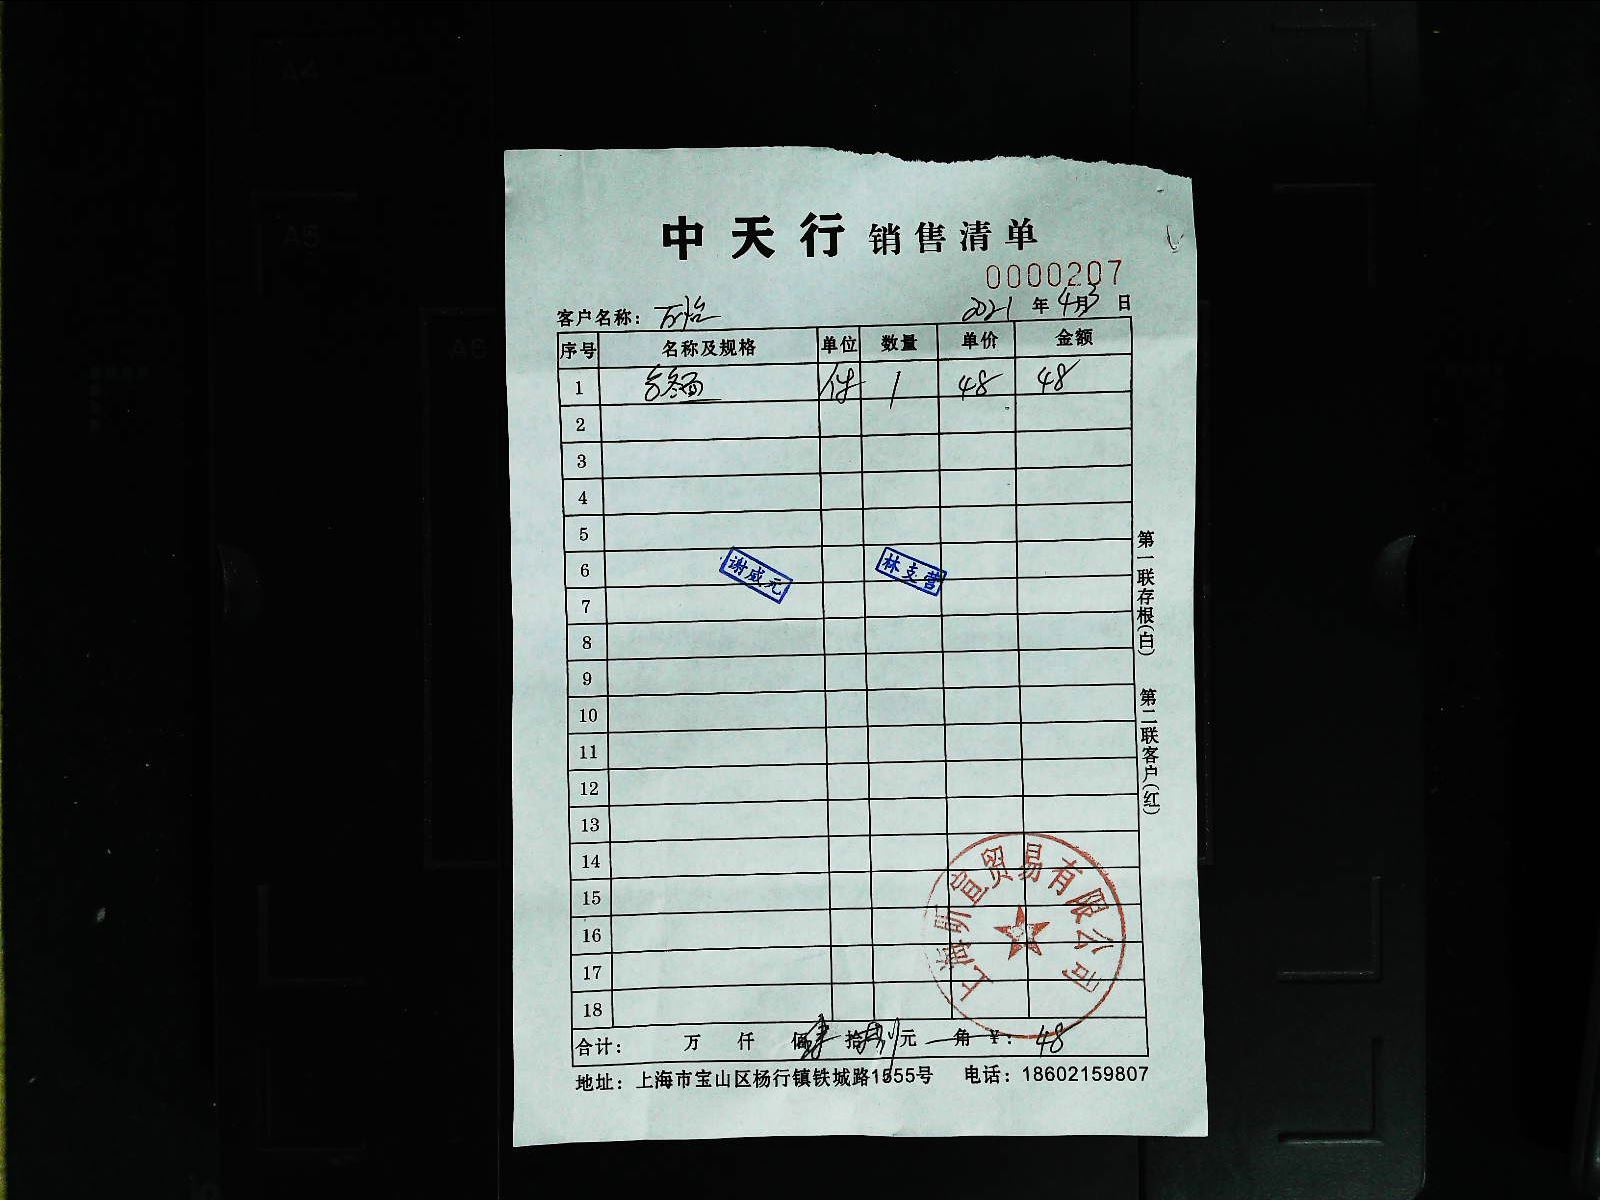 中天行 销售清单
0000207
客户名称：万怡 2021年4月3日
序号 名称及规格 单位 数量 单价 金额
1 件 1 48 48
2
3
4
5
6
谢成元 林支营
7
8
9
10
11
12
13
14
15
16
17
18
上海 宣贸易有限公司
合计： 万 仟 佰肆拾捌元 角 ￥：48
地址：上海市宝山区杨行镇铁城路1555号 电话：18602159807
第一联存根(白) 第二联客户(红)
A4
A5
A6